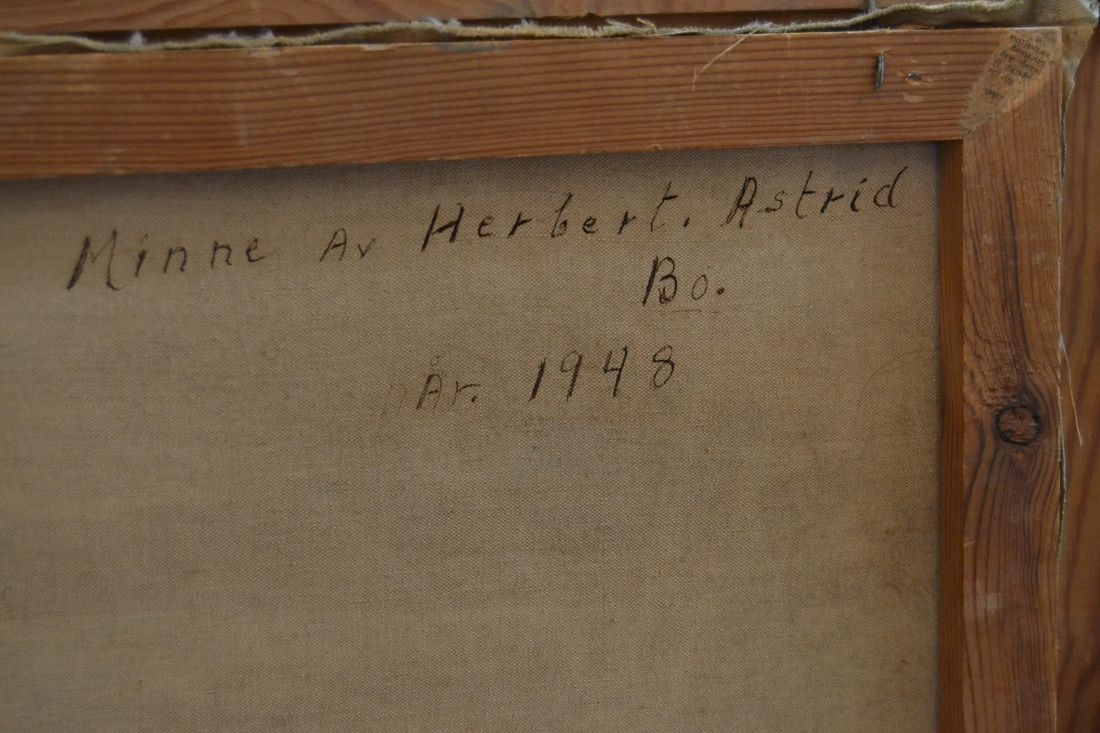 Minne Av Herbert. Astrid
Bo.
År. 1948